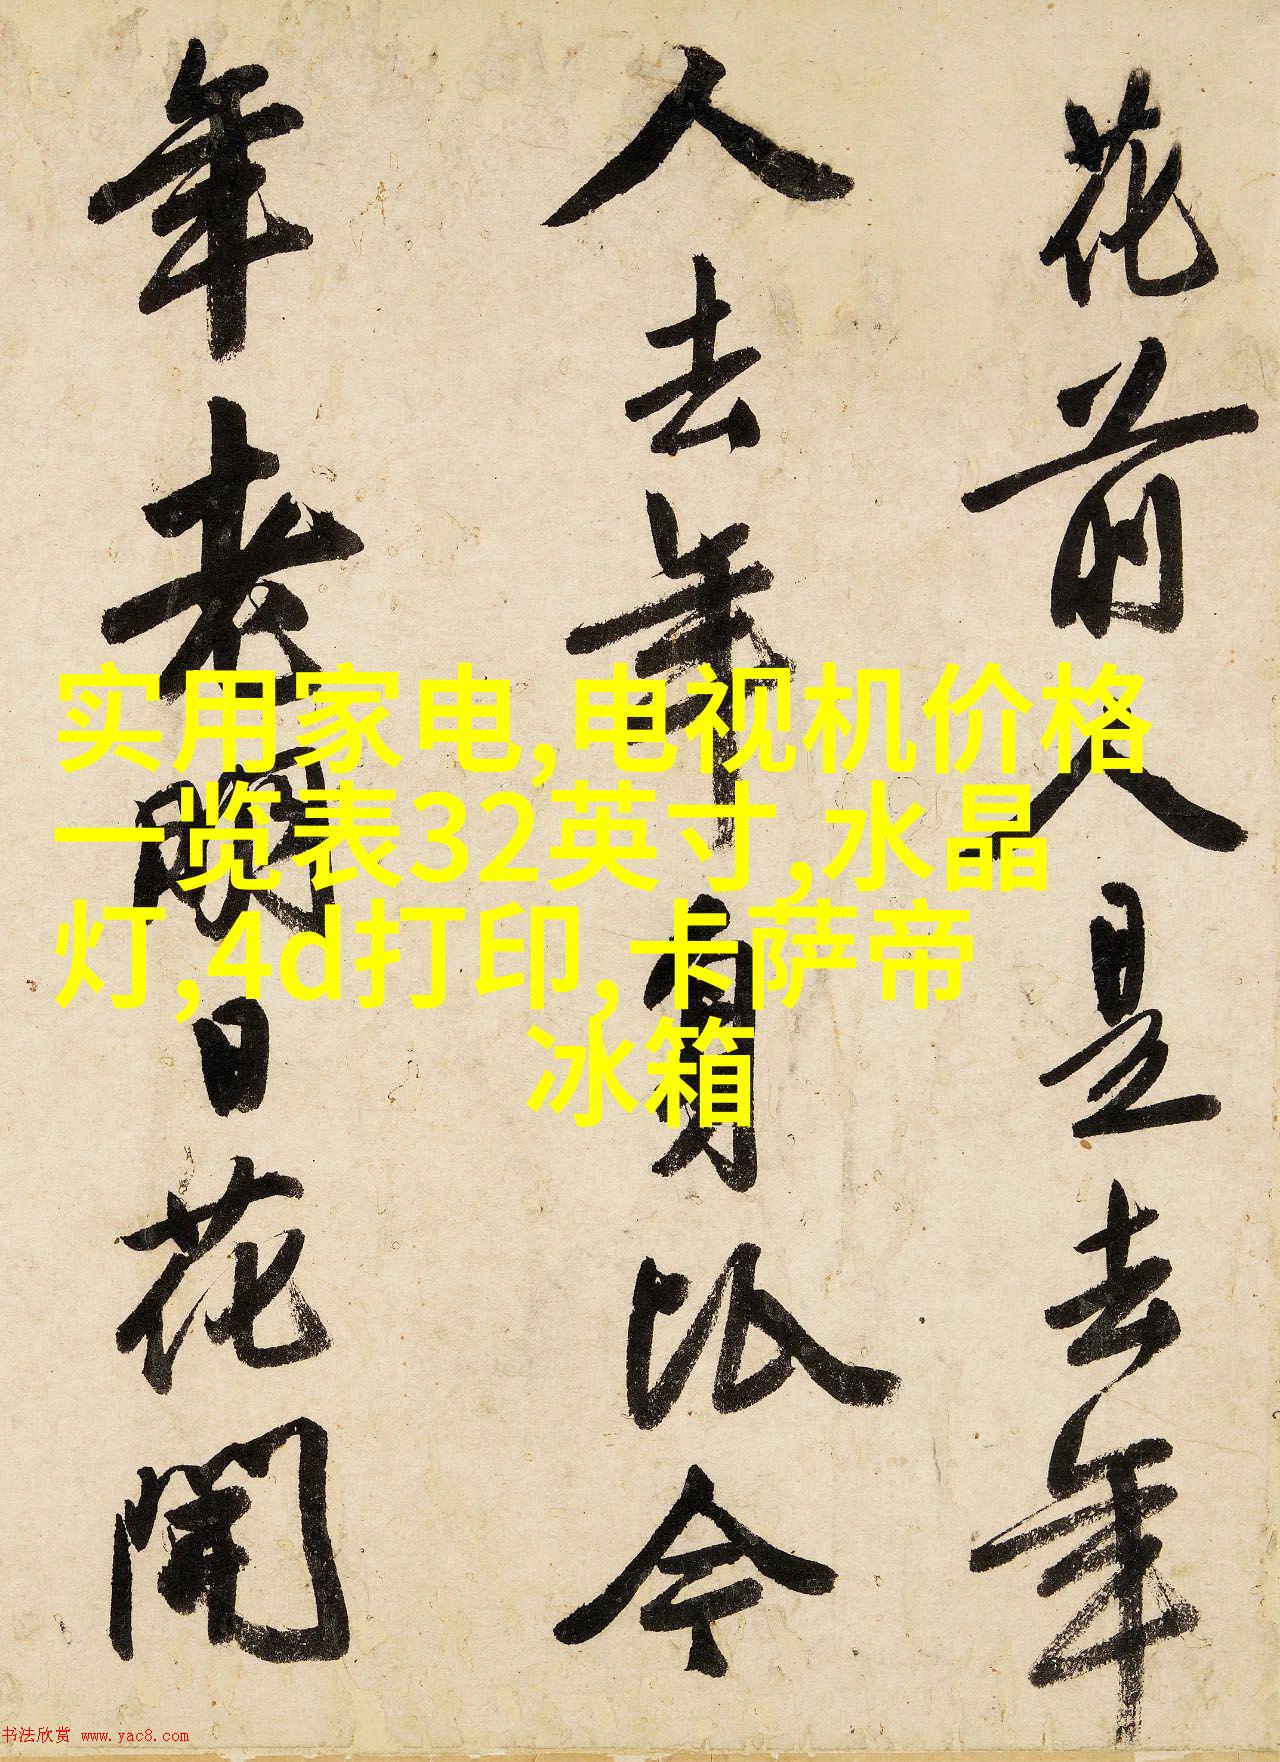 花前人是去年
人去年身比今
年老明日花開
实用家电,电视机价格
一览表32英寸,水晶
灯,4d打印,卡萨帝
冰箱
书法欣赏 www.yac8.com